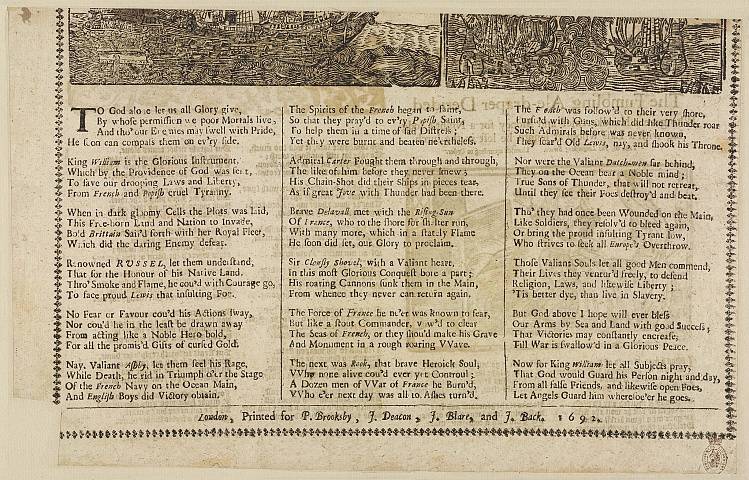 TO God alone let us all Glory give,
By whose permission we poor Mortals live,
And tho' our Enemies may swell with Pride,
He soon can compass them on ev'ry side.
King William is the Glorious Instrument,
Which by the Providence of God was sent,
To save our drooping Laws and Liberty,
From French and Popish cruel Tyranny.
When in dark gloomy Cells the Plots was Laid,
This Free-born Land and Nation to Invade,
Bold Brittain Sail'd forth with her Royal Fleet,
Which did the daring Enemy defeat.
Renowned RUSSEL, let them understand,
That for the Honour of his Native Land,
Thro' Smoke and Flame, he cou'd with Courage go,
To face proud Lewis that insulting Foe.
No Fear or Favour cou'd his Actions sway,
Nor cou'd he in the least be drawn away
From acting like a Noble Hero bold,
For all the promis'd Gifts of cursed Gold.
Nay, Valiant Ashby, let them feel his Rage,
While Death, he rid in Triumph o'er the Stage
Of the French Navy on the Ocean Main,
And English Boys did Victory obtain.
The Spirits of the French began to faint,
So that they pray'd to ev'ry Popish Saint,
To help them in a time of sad Distress;
Yet they were burnt and beaten nevertheless.
Admiral Carter Fought them through and through,
The like of him before they never knew;
His Chain-Shot did their Ships in pieces tear,
As if great Jove with Thunder had been there.
Brave Delavall met with the Rising-Sun
Of France, who to the shore for shelter run,
With many more, which in a stately Flame
He soon did set, our Glory to proclaim.
Sir Clously Shovel, with a Valiant heart,
In this most Glorious Conquest bore a part;
His roaring Cannons sunk them in the Main,
From whence they never can return again.
The Force of France he ne'er was known to fear,
But like a stout Commander, vow'd to clear
The Seas of French, or they shou'd make his Grave
And Monument in a rough roaring VVave.
The next was Rook, that brave Heroick Soul;
VVho none alive cou'd ever yet Controul;
A Dozen men of VVar of France he Burn'd,
VVho e'er next day was all to Ashes turn'd.
The French was follow'd to their very shore,
Pursu'd with Guns, which did like Thunder roar
Such Admirals before was never known,
They fear'd Old Lewis, nay, and shook his Throne.
Nor were the Valiant Dutchmen far behind,
They on the Ocean bear a Noble mind;
True Sons of Thunder, that will not retreat,
Until they see their Foes destroy'd and beat.
Tho' they had once been Wounded on the Main,
Like Soldiers, they resolv'd to bleed again,
Or bring the proud insulting Tyrant low,
Who strives to seek all Europe's Overthrow.
Those Valiant Souls let all good Men commend,
Their Lives they ventur'd freely, to defend
Religion, Laws, and likewise Liberty;
'Tis better dye, than live in Slavery.
But God above I hope will ever bless
Our Arms by Sea and Land with good Success;
That Victories may constantly encrease,
Till War is swallow'd in a Glorious Peace.
Now for King William let all Subjects pray,
That God would Guard his Person night and day,
From all false Friends, and likewise open Foes,
Let Angels Guard him wheresoe'er he goes.
London, Printed for P. Brooksby, J. Deacon, J. Blare, and J. Back. 1692.